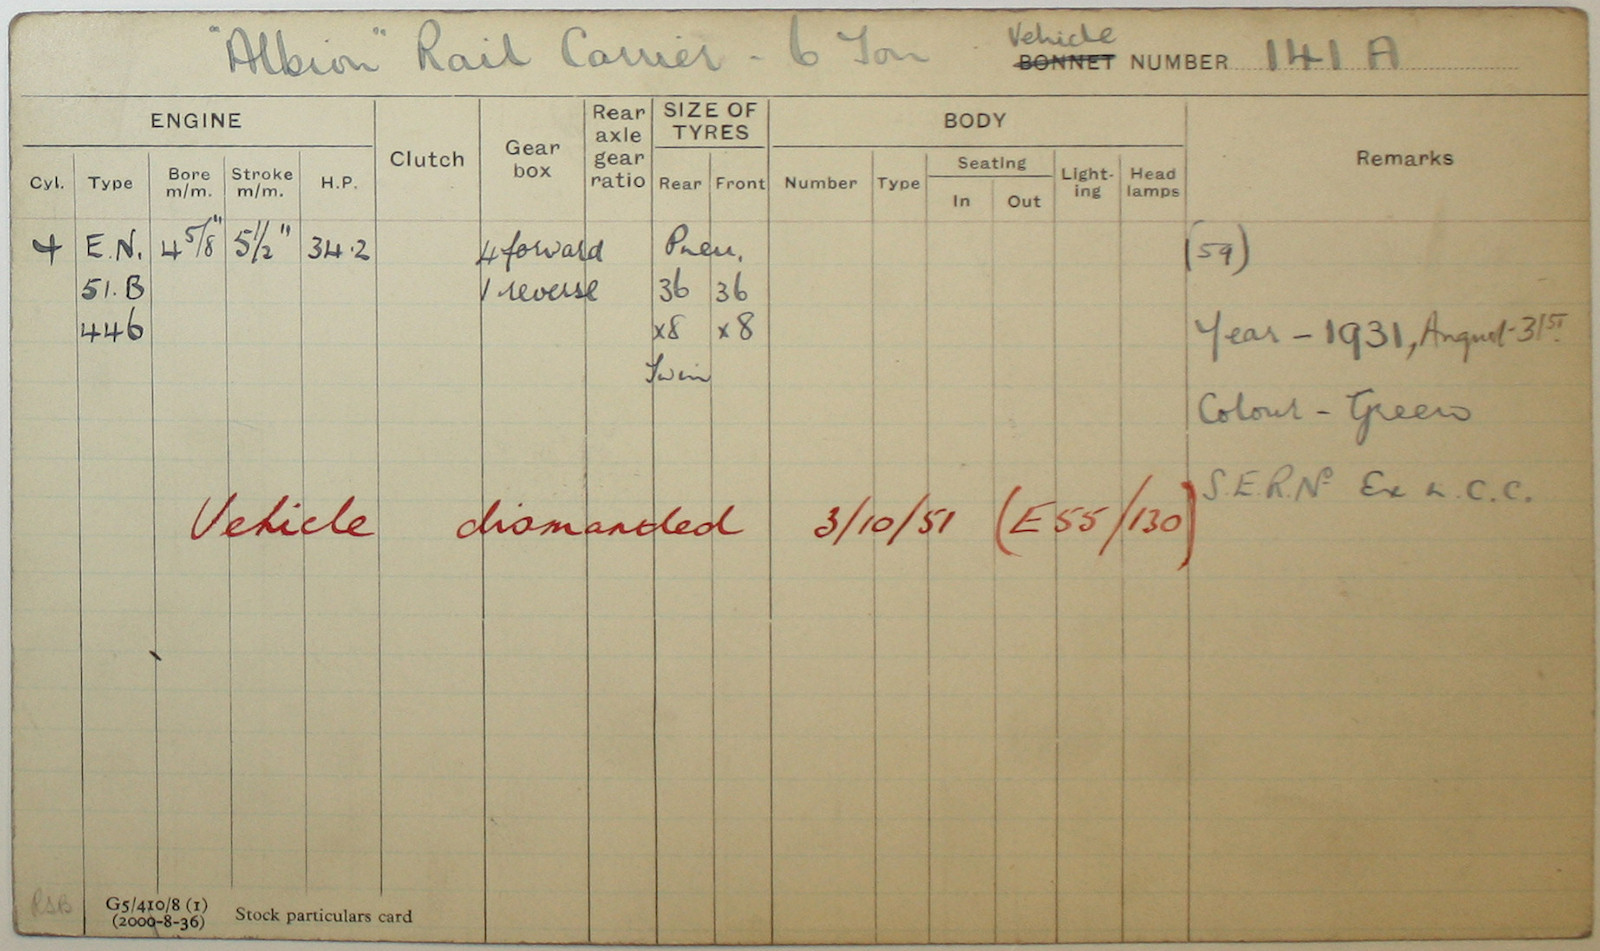 "Albion" Rail Carrier - 6 Ton
Vehicle
BONNET NUMBER 141 A
ENGINE
Clutch
Gear box
Rear axle gear ratio
SIZE OF TYRES
BODY
Remarks
Cyl. Type Bore m/m. Stroke m/m. H.P.
Rear Front
Number Type Seating In Out Light-ing Head lamps
4 E.N. 4 5/8" 5 1/2" 34.2 4 forward Pneu. (59)
51.B 1 reverse 36 36
446 x8 x8 Year - 1931, August 31ST
Twin
Colour - Green
S.E.R.No Ex L.C.C.
Vehicle dismantled 3/10/51 (E55/130)
RSB
G5/410/8 (1)
(2000-8-36)
Stock particulars card